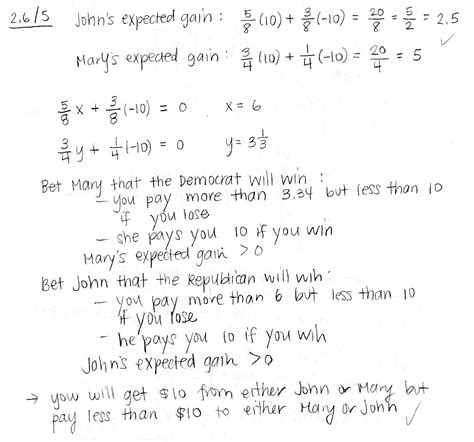 2.6/5 John's expected gain : 5/8 (10) + 3/8 (-10) = 20/8 = 5/2 = 2.5
Mary's expected gain : 3/4 (10) + 1/4 (-10) = 20/4 = 5 ✓
5/8 x + 3/8 (-10) = 0 x = 6
3/4 y + 1/4 (-10) = 0 y = 3 1/3
Bet Mary that the Democrat will win :
– you pay more than 3.34 but less than 10
if you lose
– she pays you 10 if you win
Mary's expected gain > 0
Bet John that the Republican will win :
– you pay more than 6 but less than 10
if you lose
– he pays you 10 if you win
John's expected gain > 0
→ you will get $10 from either John or Mary but
pay less than $10 to either Mary or John ✓